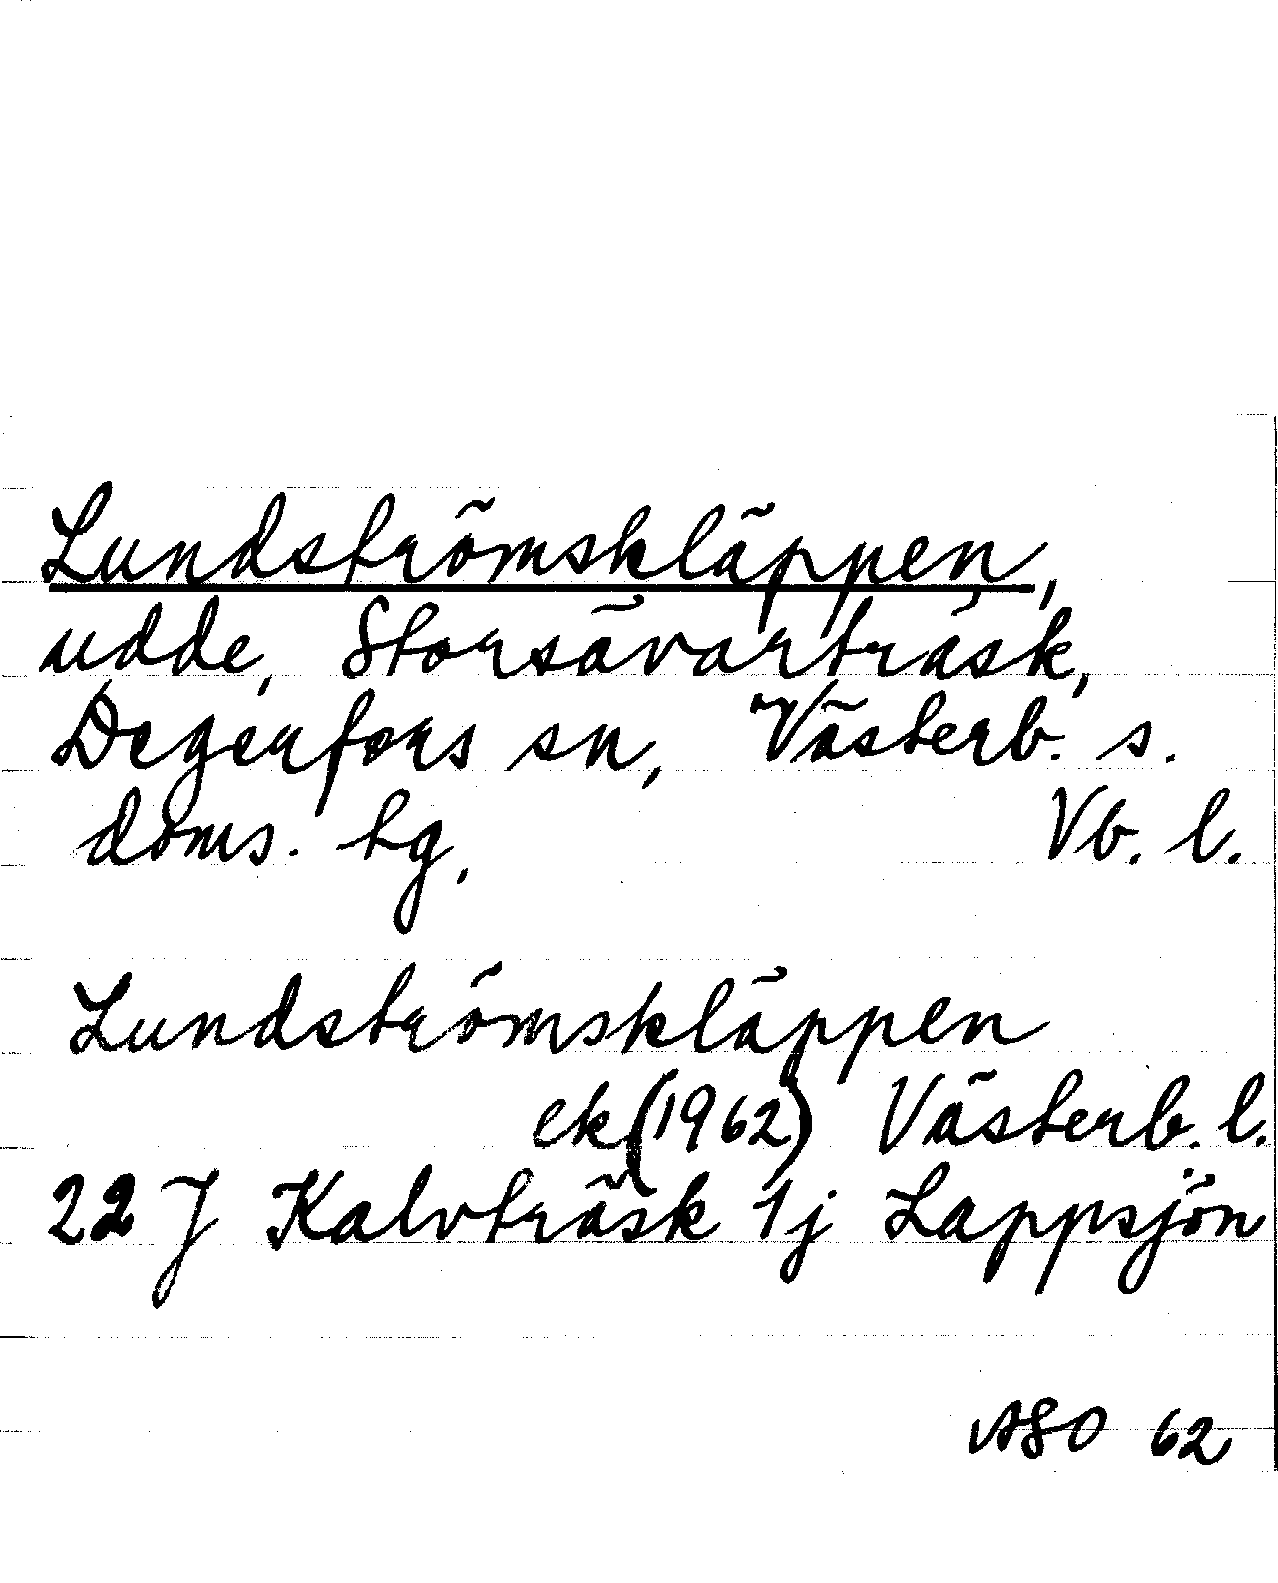 Lundströmskläppen,
udde, Storsävarträsk,
Degerfors sn, Västerb. s.
doms. tg. Vb. l.
Lundströmskläppen
ek (1962) Västerb. l.
22 J Kalvträsk 1j Lappsjön
ASO 62